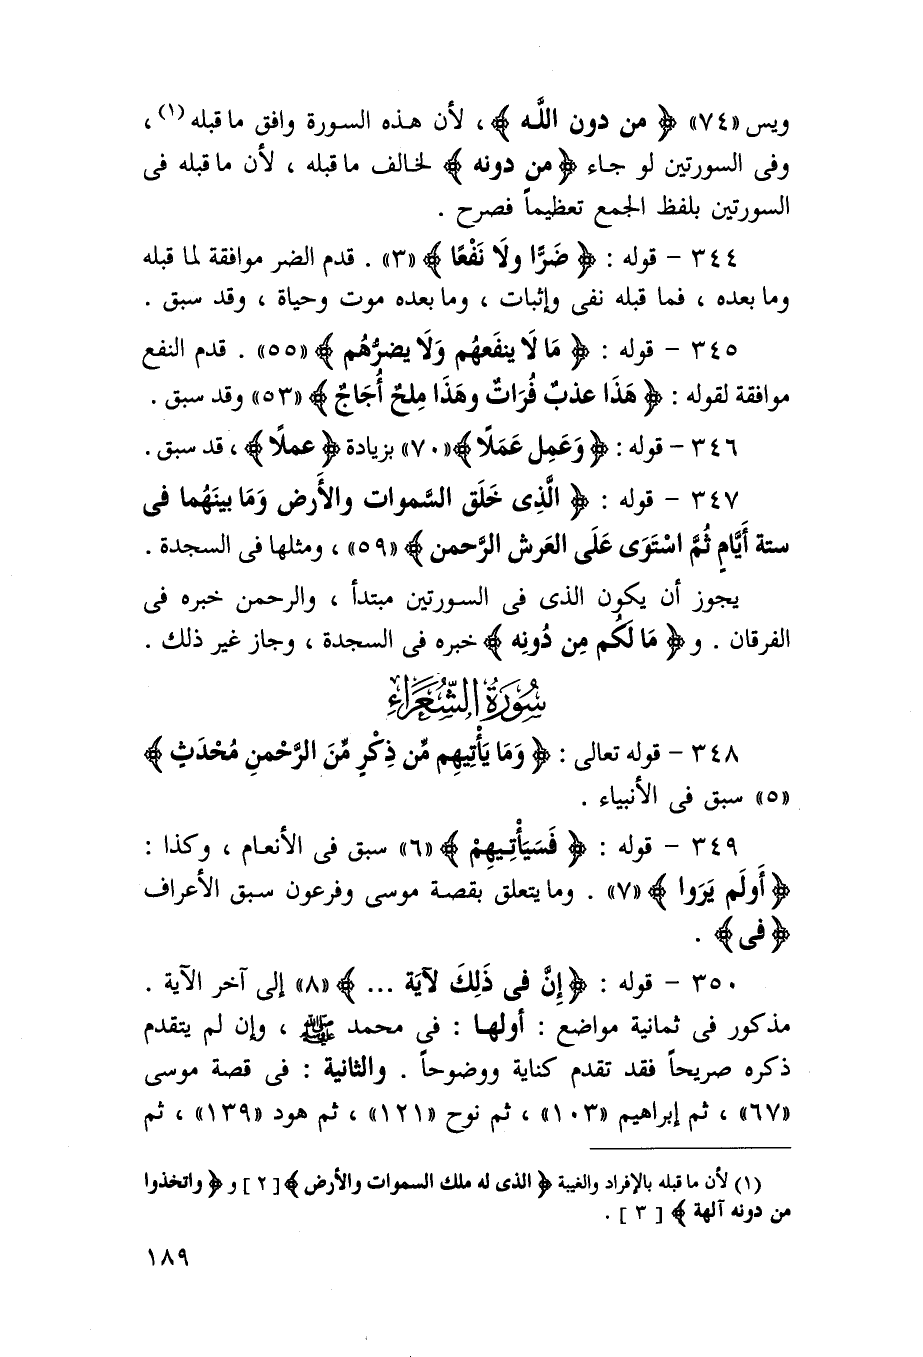 ويس «٧٤» ﴿ من دون اللَّه ﴾ ، لأن هـذه السـورة وافق ما قبله (١) ،
وفى السورتين لو جـاء ﴿ من دونه ﴾ لخـالف ما قبله ، لأن ما قبله فى
السورتين بلفظ الجمع تعظيماً فصرح .
٣٤٤ – قوله : ﴿ ضَرًّا ولَا نَفْعًا ﴾ «٣» . قدم الضر موافقة لما قبله
وما بعده ، فما قبله نفى وإثبات ، وما بعده موت وحياة ، وقد سبق .
٣٤٥ – قوله : ﴿ مَا لَا ينفَعهُم وَلَا يضرُّهُم ﴾ «٥٥» . قدم النفع
موافقة لقوله : ﴿ هَذَا عذبٌ فُرَاتٌ وهَذَا مِلحٌ أُجَاجٌ ﴾ «٥٣» وقد سبق .
٣٤٦ – قوله : ﴿ وَعَمِل عَمَلًا ﴾ «٧٠» بزيادة ﴿ عملًا ﴾ ، قد سبق .
٣٤٧ – قوله : ﴿ الَّذِى خَلَق السَّموات والأَرض وَمَا بينَهُما فى
ستة أَيَّامٍ ثُمَّ اسْتَوَى عَلَى العَرش الرَّحمن ﴾ «٥٩» ، ومثلها فى السجدة .
يجوز أن يكون الذى فى السـورتين مبتدأ ، والرحمن خبره فى
الفرقان . و ﴿ مَا لَكُم مِن دُونِه ﴾ خبره فى السجدة ، وجاز غير ذلك .
سُورَةُ الشُّعَرَاءِ
٣٤٨ – قوله تعالى : ﴿ وَمَا يَأْتِيهِم مِّن ذِكْرٍ مِّنَ الرَّحْمنِ مُحْدَثٍ ﴾
«٥» سبق فى الأنبياء .
٣٤٩ – قوله : ﴿ فَسَيَأْتِـيهِمْ ﴾ «٦» سبق فى الأنعـام ، وكذا :
﴿ أَولَم يَرَوا ﴾ «٧» . وما يتعلق بقصـة موسى وفرعون سـبق الأعراف
﴿ فى ﴾ .
٣٥٠ – قوله : ﴿ إِنَّ فى ذَلِكَ لآيَة ... ﴾ «٨» إلى آخر الآية .
مذكور فى ثمانية مواضع : أولهـا : فى محمد ﷺ ، وإن لم يتقدم
ذكره صريحاً فقد تقدم كناية ووضوحاً . والثانية : فى قصة موسى
«٦٧» ، ثم إبراهيم «١٠٣» ، ثم نوح «١٢١» ، ثم هود «١٣٩» ، ثم
(١) لأن ما قبله بالإفراد والغيبة ﴿ الذى له ملك السموات والأرض ﴾ [ ٢ ] و ﴿ واتخذوا
من دونه آلهة ﴾ [ ٣ ] .
١٨٩